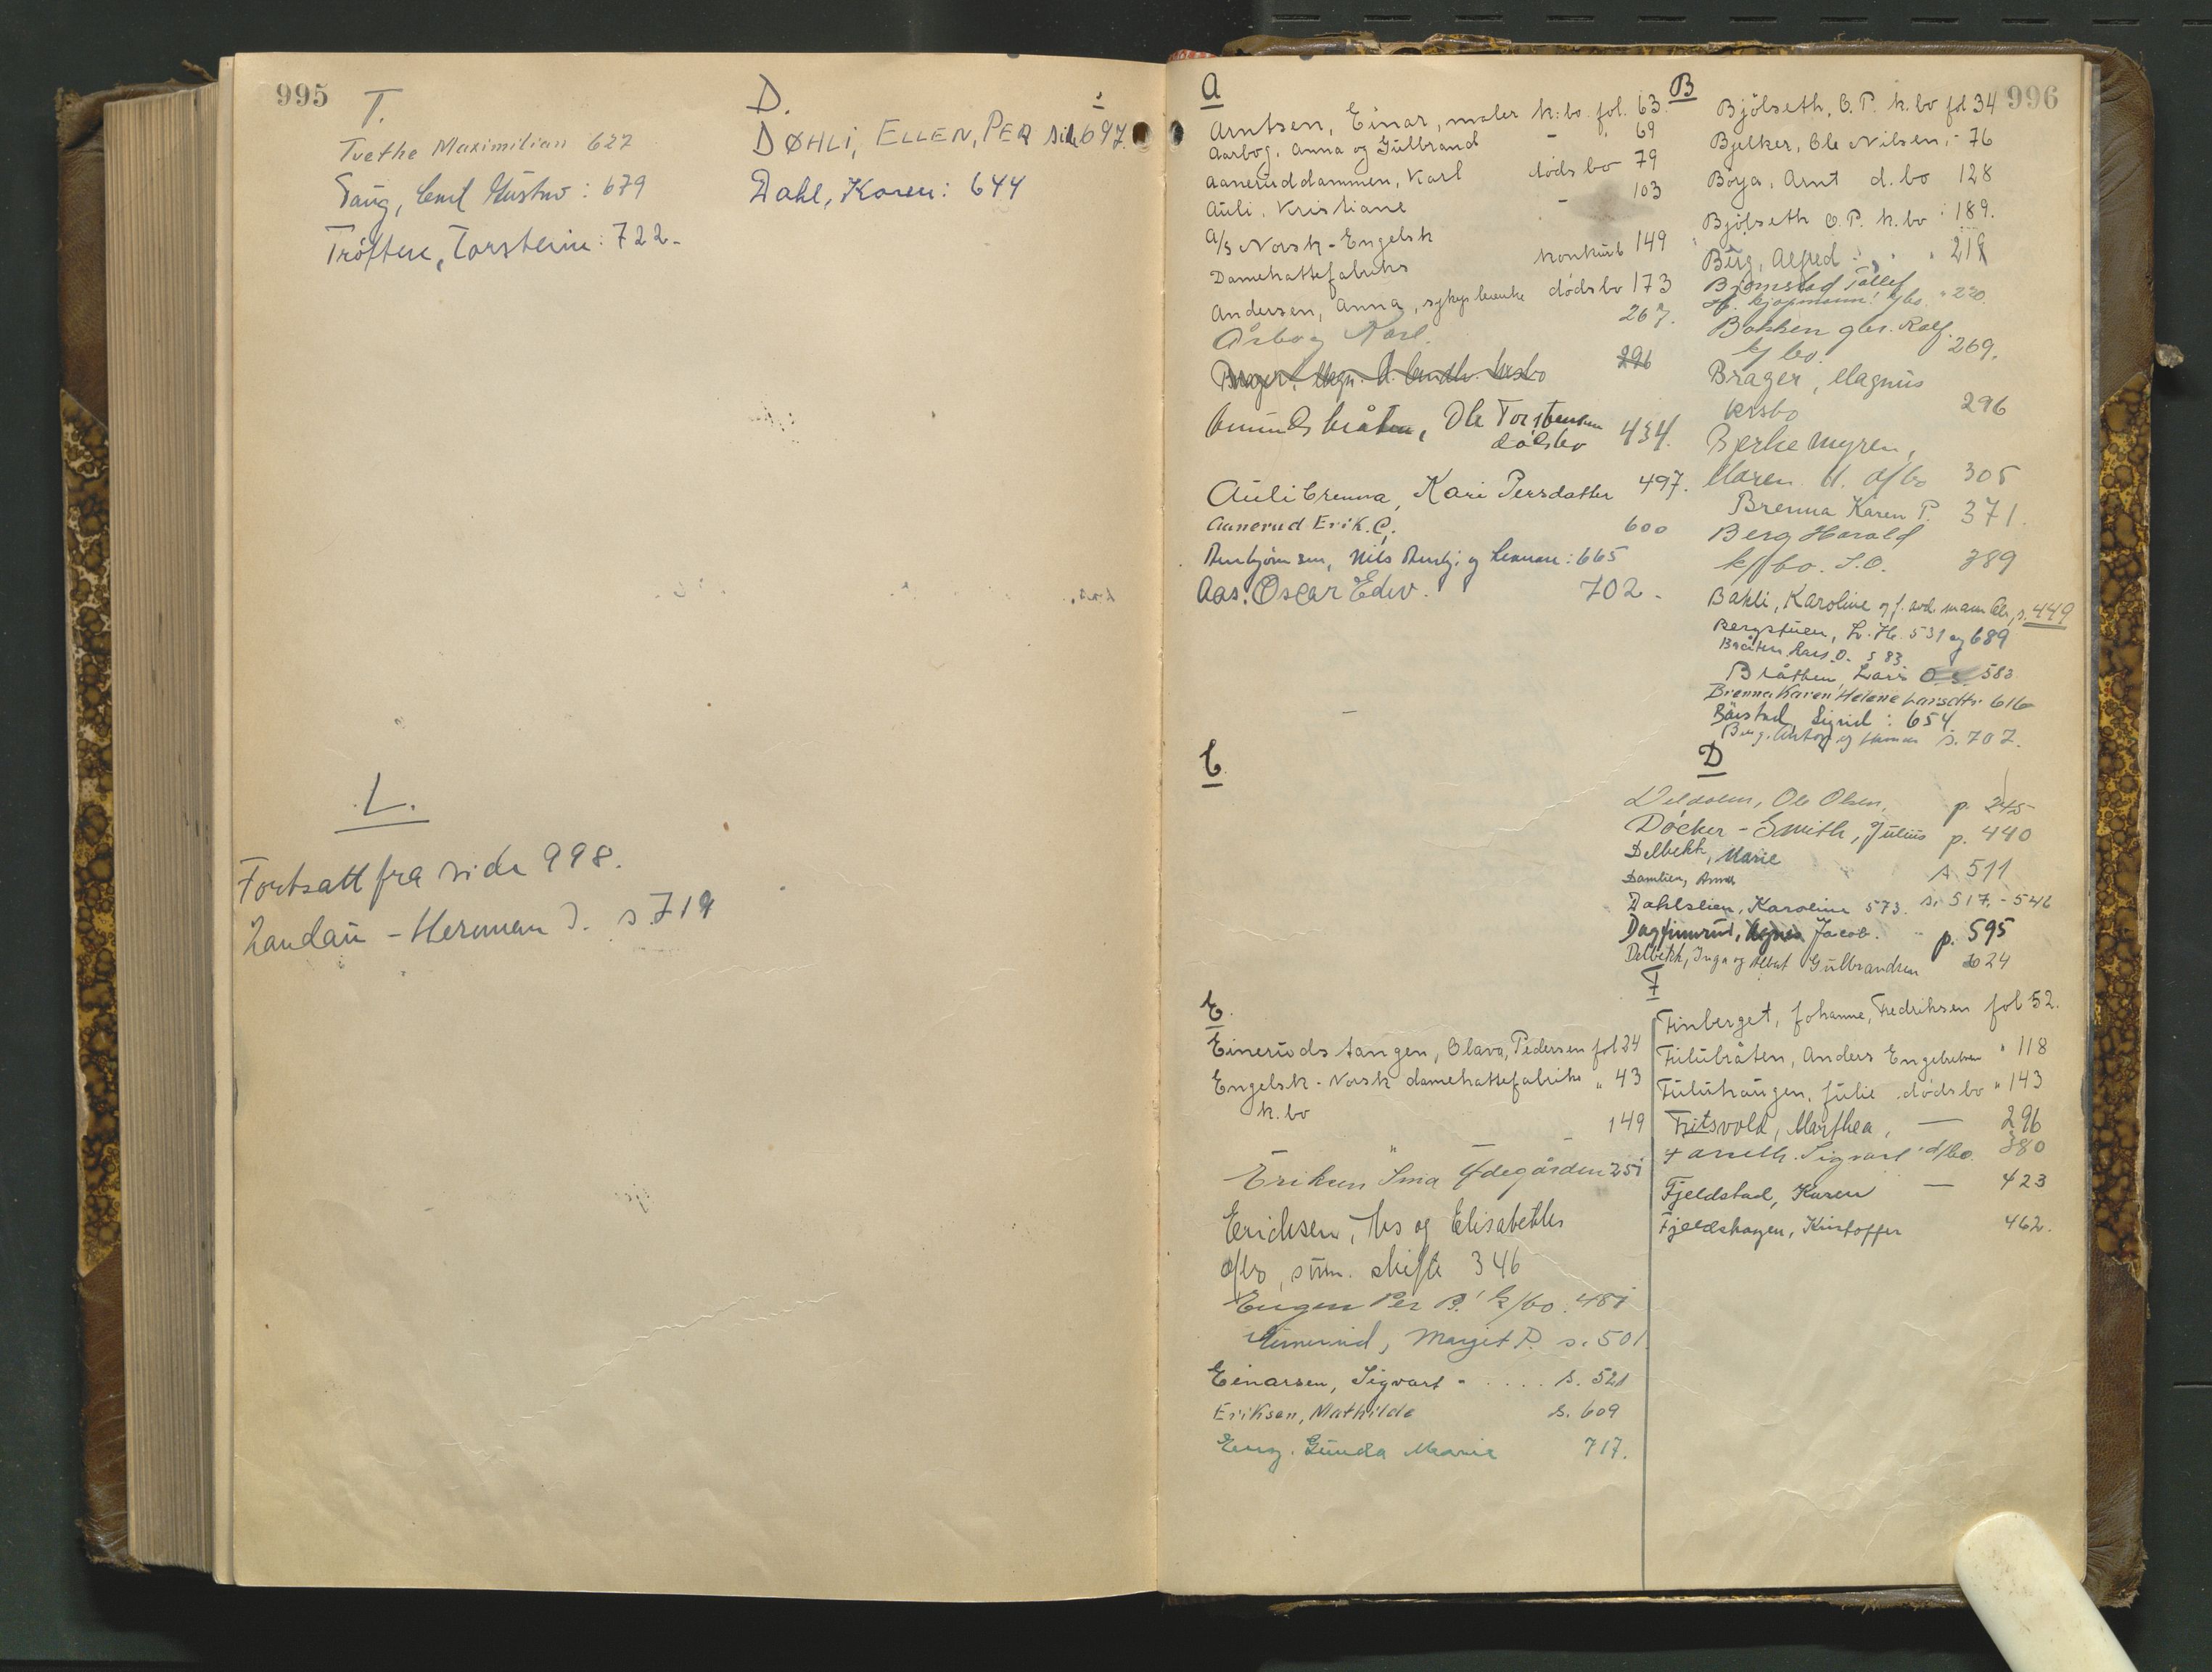 995
T.
Tvethe Maximilian 627
Gustav : 679
Tröften, Torstein : 722.-
D.
DØHLI, ELLEN, PER side 697.
Dahl, Karen : 644
L.
Fortsatt fra side 998.
Landau - Herman J. s. 719
996
A
Arntsen, Einar, maler k.bo. fol. 63.
Aarbog, Anna og Gulbrand - " 69
Aaneruddammen, Karl dødsbo 79
Auli, Kristiane - 103
A/s Norsk-Engelsk
Damehattefabriks konkurs 149
Andersen, Anna, dødsbo 173
Årbog Karl. 267.
296
Ole Torstensen
dødsbo 434.
Aulibrenna, Kari Persdatter 497.
Aanerud Erik. C. 600
Nils : 665
Aas. Oscar Edv. 702.-
B
Bjölseth, O.P. k.bo fol 34
Bjelker, Ole Nilsen, " 76
Böya, Arnt d. bo 128
Bjölseth O.P. k.bo : 189.
Berg, Alfred " " " 219
Bjørnstad Tollef
kjøpmann k/bo. " 220.
Bakken gbr. Rolf.
k/bo. 269.
Brager, Magnus
krsbo 296
Bjerkemyren,
Maren M. d/bo 305
Brenna Karen P. 371.
Berg Harald
k/bo. S.O. 389
Bakli, Karoline og f. avd. mann Ole, s. 449
Bergstuen, L. H. 531 og 689
Bråten Lars O. 583
Bråthen, Lars O. s. 583.
Brenna Karen Helene Larsdtr. 616
Båstad, Sigrid : 654
Berg, Anton og s. 707.
C
D
Ole Olsen, p. 245
Döcker-Smith, Julius p. 440
Delbekk, Marie s 511
Damlien, Anna s. 517.-546
Dahlslien, Karoline 573.
Dagfinrud, Jacob. p. 595
Delbekk, Inga og Albert Gulbrandsen 624
E.
Eineruds tangen, Olava, Pedersen fol 24
Engelsk-Norsk damehattefabriks " 43
k.bo " 149
Eriksen Sina Ødegården 251
Erichsen, Ths og Elisabethes
d/bo, sum. skifte 346
Engen Per P. k/bo. 481
Einerud, Margit P. s. 501.
Einarsen, Sigvart - . . . . s. 521
Eriksen, Mathilde s. 609
Eng. Gunda Marie 717.
F
Finberget, Johanne, Fredriksen fol 52.
Fulubråten, Anders Engebretsen " 118
Fuluhaugen, Julie dødsbo " 143
Fritsvold, Marthea, — 296
Sigvart d/bo. 380
Fjeldstad, Karen — 423
Fjeldshagen, Kristoffer 462.